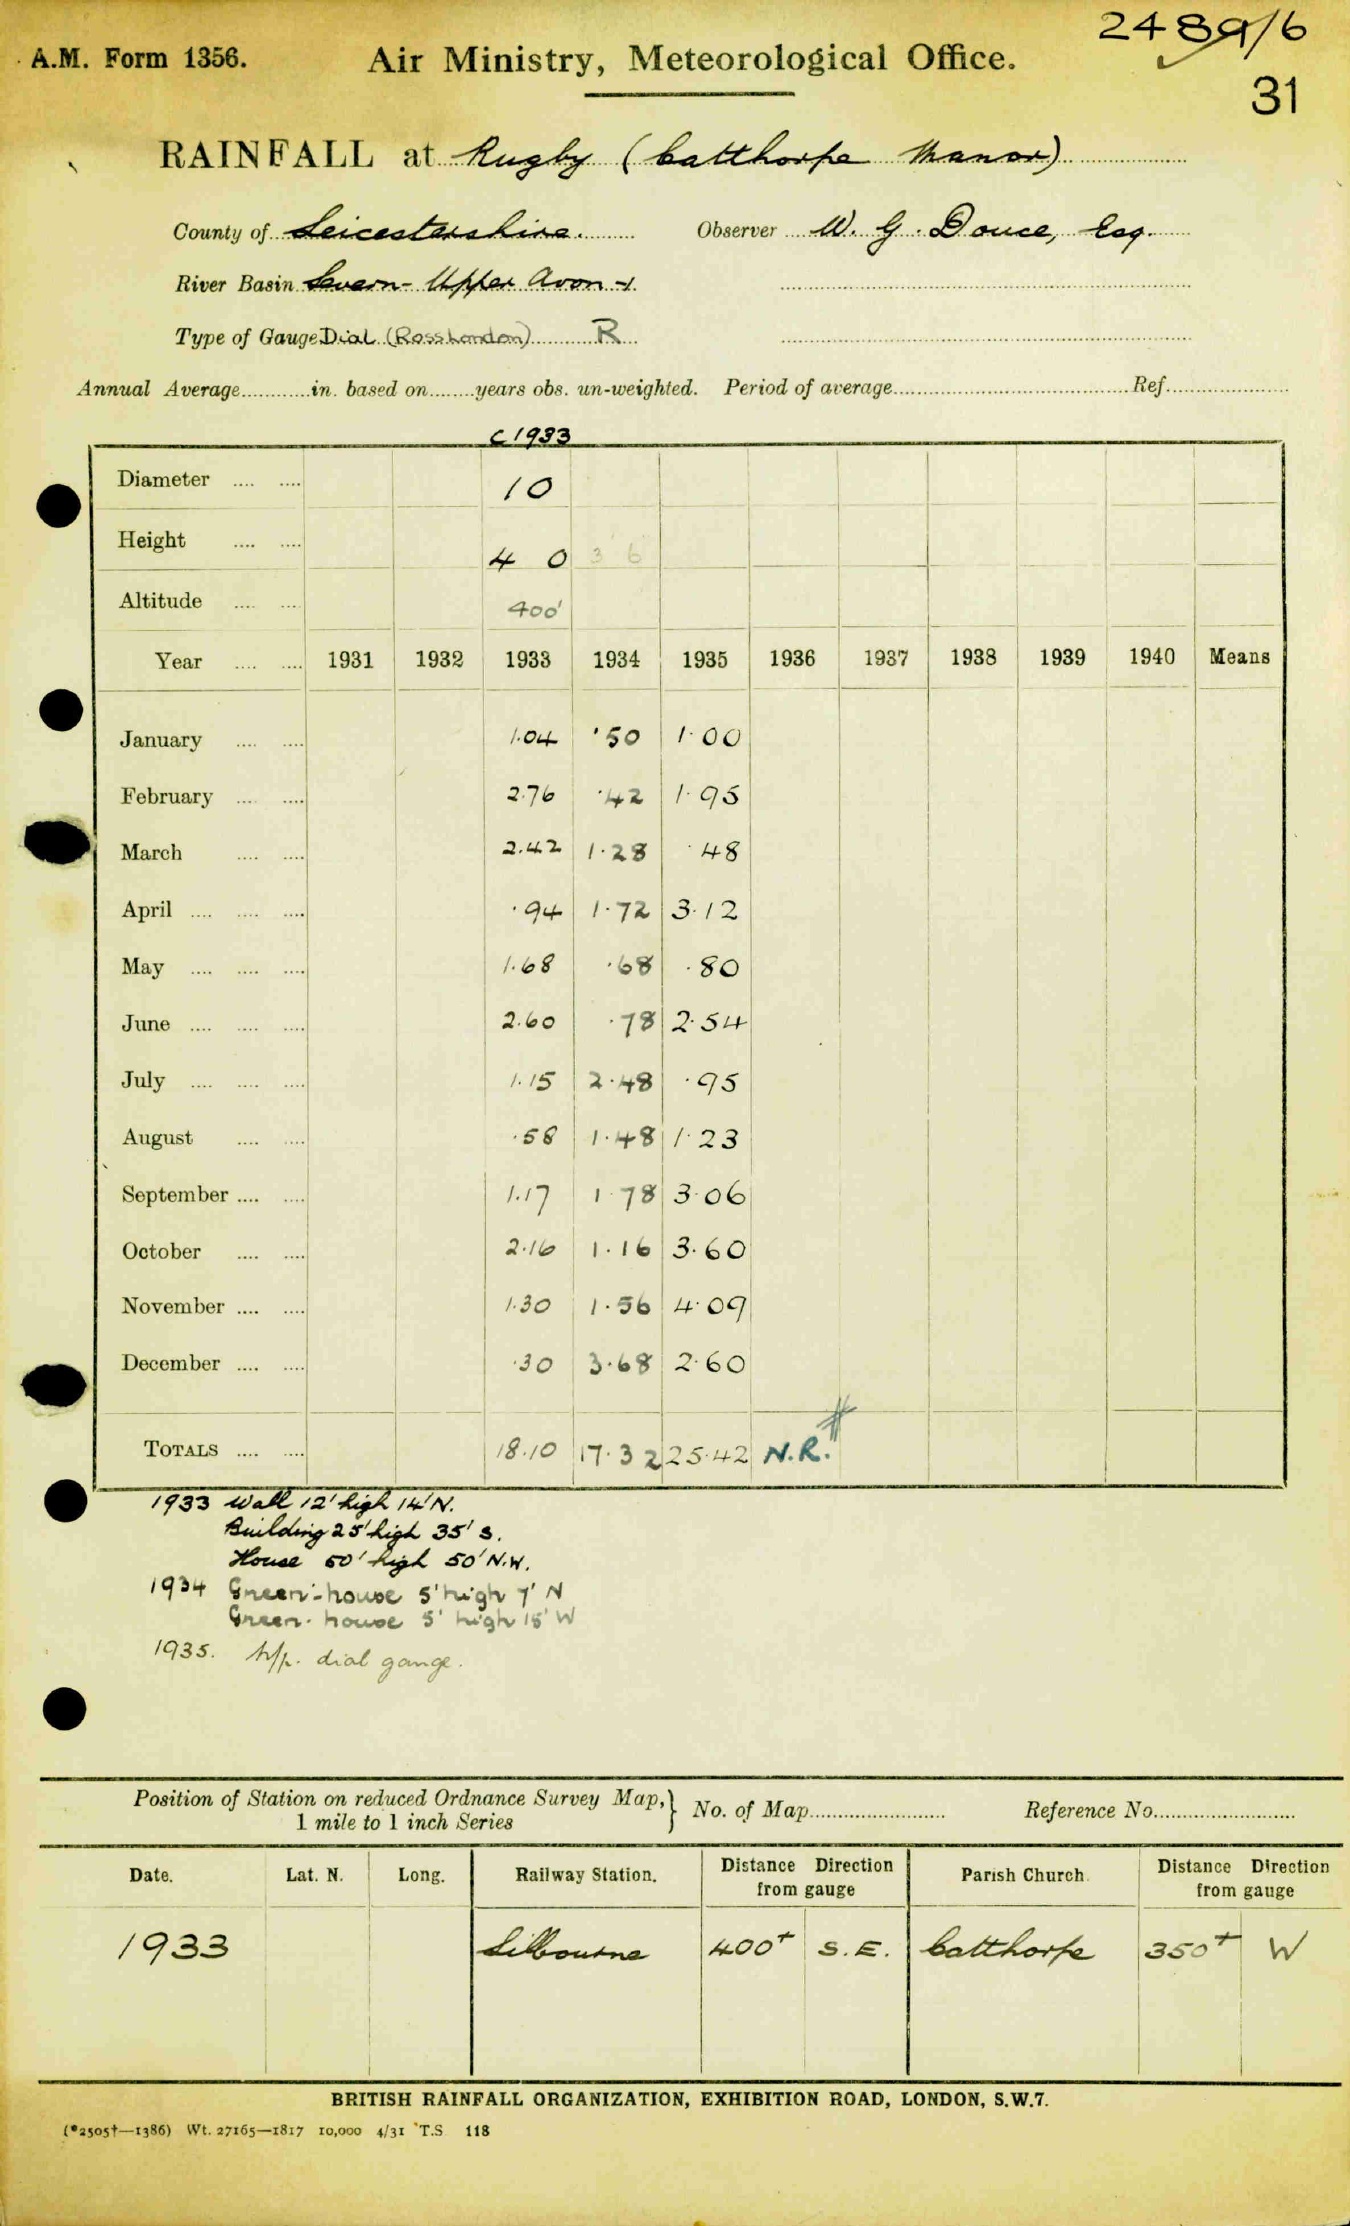 2489/6
A.M. Form 1356. Air Ministry, Meteorological Office.
31
RAINFALL at Rugby (Catthorpe Manor)
County of Leicestershire. Observer W. G. Douce, Esq.
River Basin Severn - Upper Avon
Type of Gauge Dial (Ross London) R
Annual Average in. based on years obs. un-weighted. Period of average Ref.
c1933
Diameter 10
Height 4 0 3 6
Altitude 400'
Year 1931 1932 1933 1934 1935 1936 1937 1938 1939 1940 Means
January 1.04 .50 1.00
February 2.76 .42 1.95
March 2.42 1.28 .48
April .94 1.72 3.12
May 1.68 .68 .80
June 2.60 .78 2.54
July 1.15 2.48 .95
August .58 1.48 1.23
September 1.17 1.78 3.06
October 2.16 1.16 3.60
November 1.30 1.56 4.09
December .30 3.68 2.60
TOTALS 18.10 17.32 25.42 N.R.#
1933 Wall 12' high 14' N.
Building 25' high 35' S.
House 50' high 50' N.W.
1934 Green-house 5' high 7' N
Green-house 5' high 15' W
1935. dial gauge.
Position of Station on reduced Ordnance Survey Map, } No. of Map Reference No.
1 mile to 1 inch Series
Date. Lat. N. Long. Railway Station. Distance Direction from gauge Parish Church Distance Direction from gauge
1933 Lilbourne 400+ S.E. Catthorpe 350+ W
BRITISH RAINFALL ORGANIZATION, EXHIBITION ROAD, LONDON, S.W.7.
(*2505†—1386) Wt. 27165—1817 10,000 4/31 T.S 118